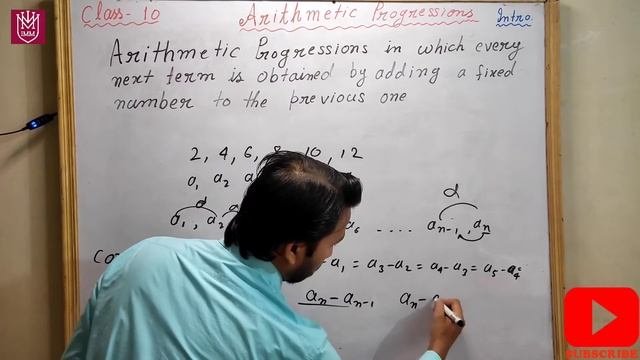 IMM
Class-10 Arithmetic Progressions Intro.
Arithmetic Progressions in which every
next term is obtained by adding a fixed
number to the previous one
2, 4, 6, 8, 10, 12
a₂
d d
a₂ a₆ .... aₙ₋₁, aₙ
a₁ = a₃-a₂ = a₄-a₃ = a₅-a₄
aₙ-aₙ₋₁ aₙ-
SUBSCRIBE